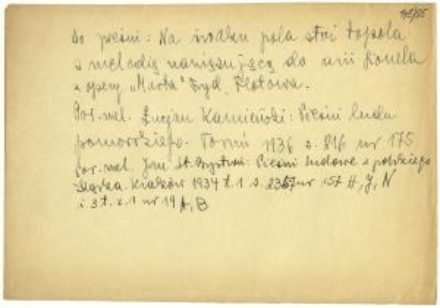 95/55
Do pieśni: Na środku pola stoi topola
z melodią nawiązującą do arii Lionela
z opery „Marta" Fryd. Flotowa.
Por. mel. Łucjan Kamieński: Pieśni ludu
pomorskiego. Toruń 1936 s. 816 nr 175
Por. mel. Jan St. Bystroń: Pieśni ludowe z polskiego
Śląska. Kraków 1934 t. 1 s. nr 157 H, J, N
i 3 t. z. 1 nr 19 A, B